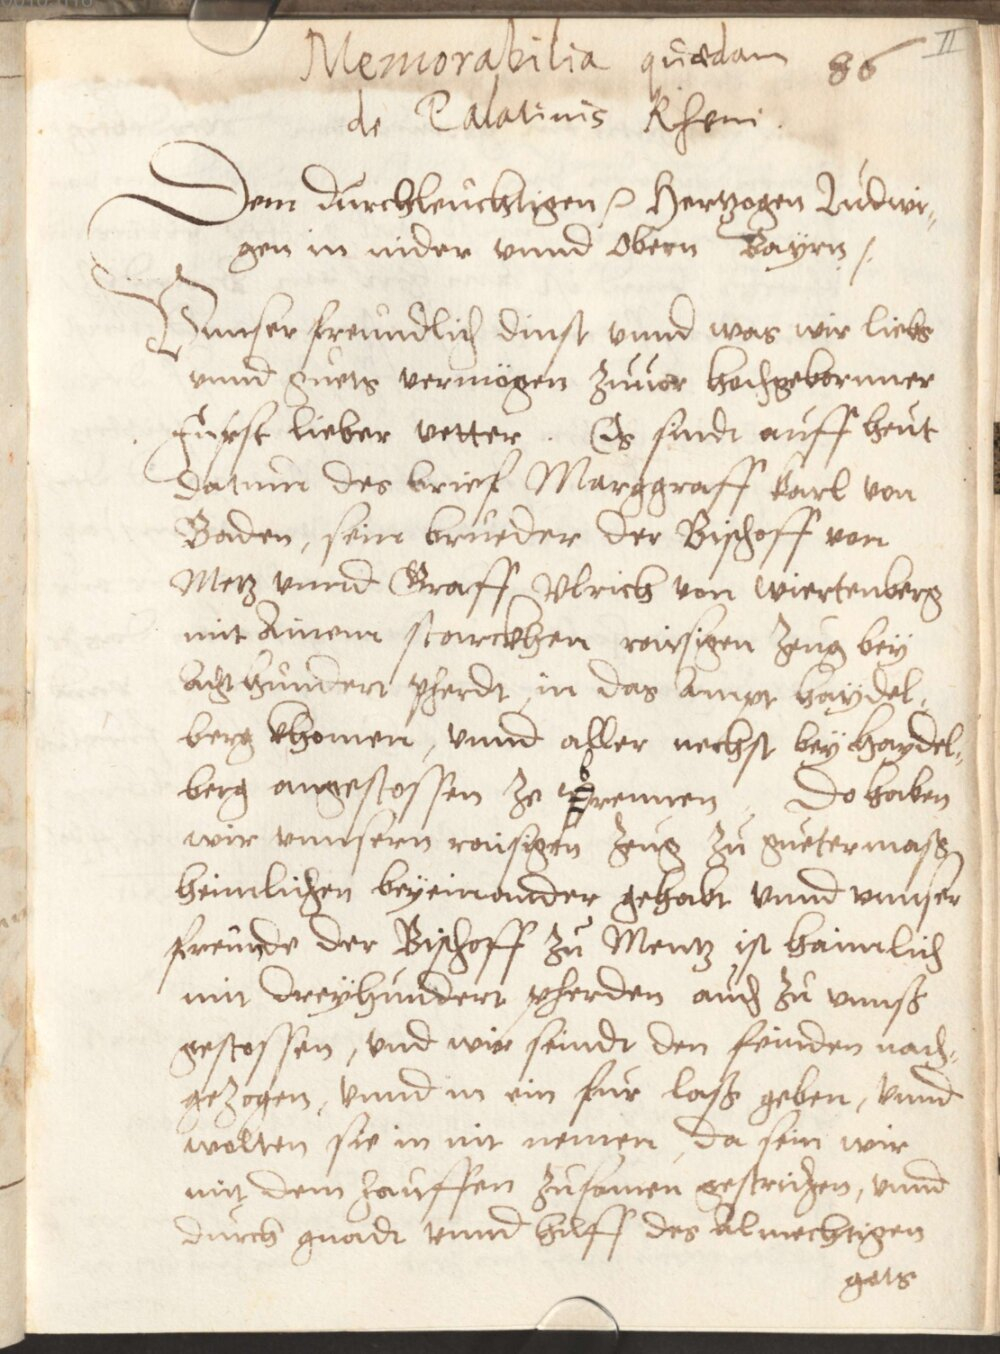 Memorabilia quædam 86 II
de Palatinis Rheni.
Dem durchleuchtigen Hertzogen Ludwi-
gen in nider vnnd Obern Bayrn /.
Vnnser freundlich dinst vnnd was wir liebs
vnnd guets vermögen zuuor hochgebornner
Furst lieber vetter. Es sindt auff heut
datum des brief Marggraff karl von
Baden, sein brueder der Bischoff von
Metz vnnd Graff Vlrich von Wiertenberg
mit Ainem starckhen raisigen zeug bey
acht hundert pherdt, in das Ampt haydel-
berg khomen, vnnd aller nechst bey haydel-
berg angestossen ze brennen. Do haben
wir vnnsern raisigen zeug zu guetermaß
heimlichen beyeinander gehabt vnnd vnnser
freunde der Bischoff zu Mentz ist haimlich
mit dreyhundert pherden auch zu vnnß
gestossen, vnd wir seindt den feinden nach-
gezogen, vnnd in ein fur laß geben, vnnd
wolten sie in nit nemen, da sein wir
mit dem hauffen zusamen gestrichen, vnnd
durch gnadt vnnd hilff des Almechtigen
gots